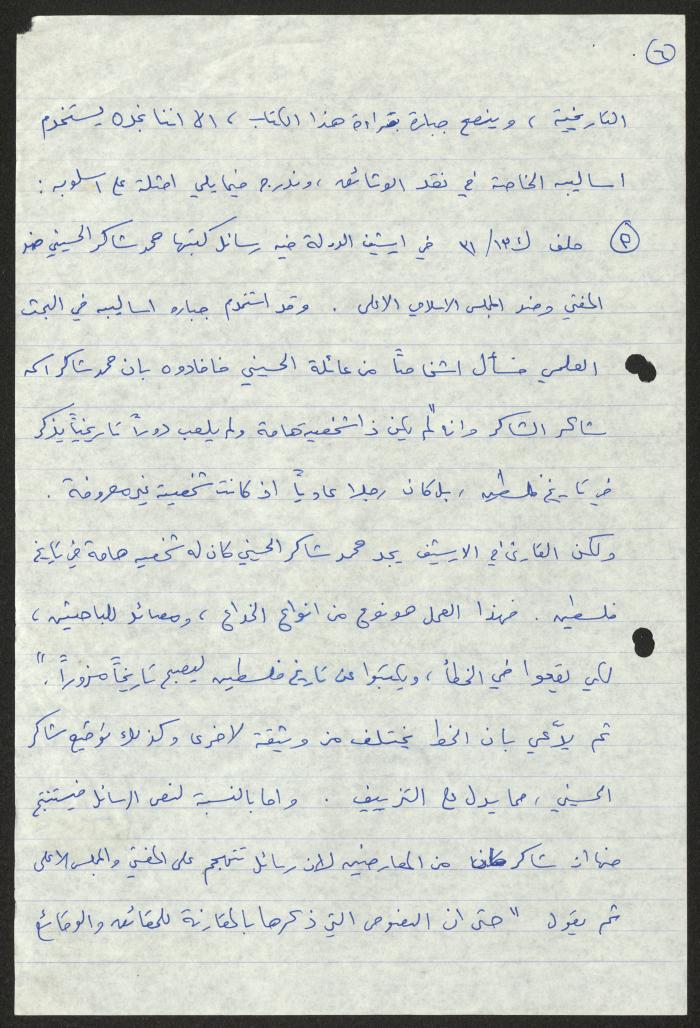 ٦
التاريخية ، وينصح جبارة بقراءة هذا الكتاب ، الا اننا نجده يستخدم
اساليبه الخاصة في نقد الوثائق ، وندرج فيما يلي امثلة على اسلوبه :
ملف ك ١٣/ ٣١ في ارشيف الدولة فيه رسائل كتبها محمد شاكر الحسيني ضد
المفتي وضد المجلس الاسلامي الاعلى . وقد استخدم جباره اساليبه في البحث
العلمي فسأل اشخاصاً من عائلة الحسيني فافادوه بان محمد شاكر اسمه
شاكر الشاكر وانه "لم يكن ذا شخصية هامة ولم يلعب دوراً تاريخياً يذكر
في تاريخ فلسطين ، بل كان رجلا عادياً اذ كانت شخصيته غير معروفة .
ولكن القارئ في الارشيف يجد محمد شاكر الحسيني كان له شخصيه هامة في تاريخ
فلسطين . فهذا العمل هو نوع من انواع الخداع ، ومصائد للباحثين ،
لكي يقعوا في الخطأ ، ويكتبوا عن تاريخ فلسطين ليصبح تاريخاً مزوراً ."
ثم يدّعي بان الخط يختلف من وثيقة لاخرى وكذلك توقيع شاكر
الحسيني ، مما يدل على التزييف . واما بالنسبة لنص الرسائل فيستنتج
منها ان شاكر كان من المعارضين لان رسائل تتهجم على المفتي والمجلس الاعلى
ثم يقول " حتى ان النصوص التي ذكرها بالمقارنة للحقائق والوقائع